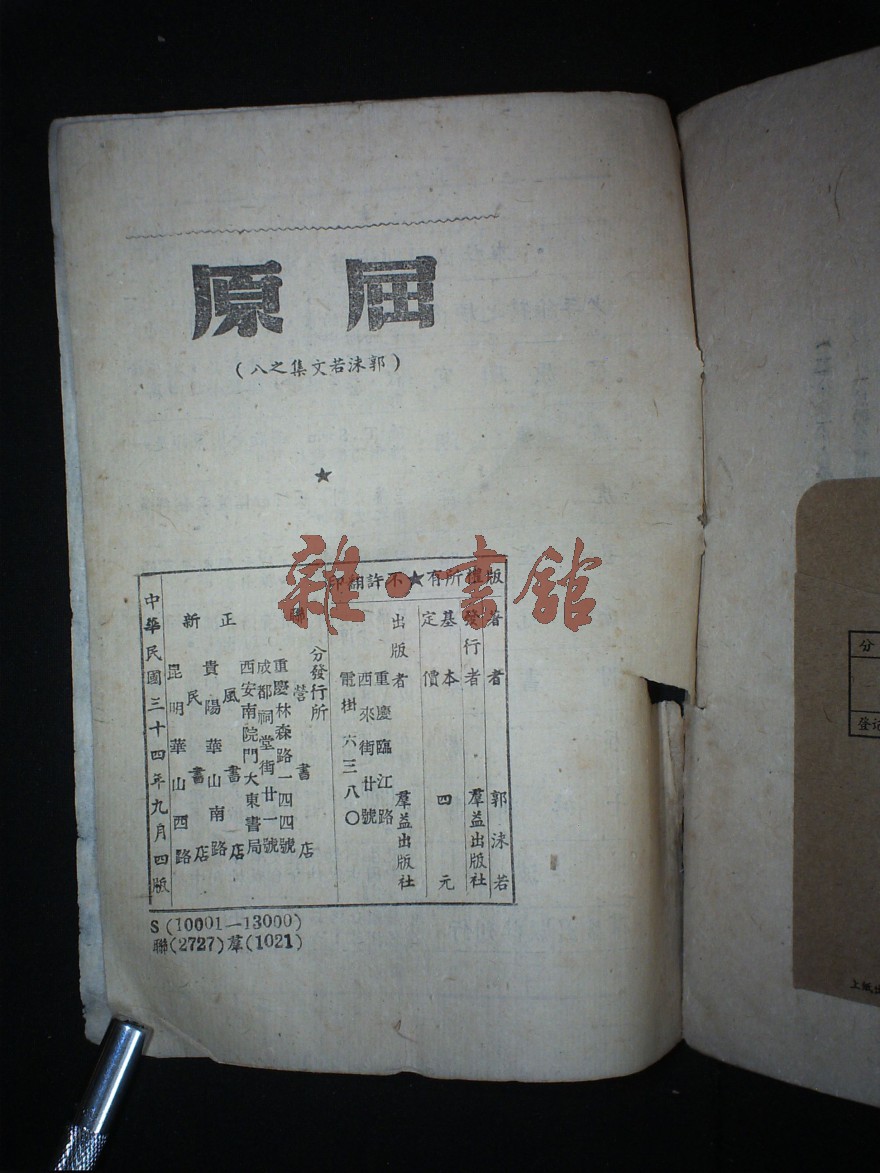 屈原
(郭沫若文集之八)
★
版權所有★不許翻印
著者 郭沫若
發行者 羣益出版社
基本定價 四元
出版者 羣益出版社
重慶臨江路
西來街廿號
電掛六三八〇
分發行所
聯營書店
重慶林森路一四四號
成都祠堂街廿一號
西安南院門大東書局
正風書店
貴陽華山南路
新民書店
昆明華山西路
中華民國三十四年九月四版
S(10001—13000)
聯(2727)羣(1021)
雜·書館
分
登記